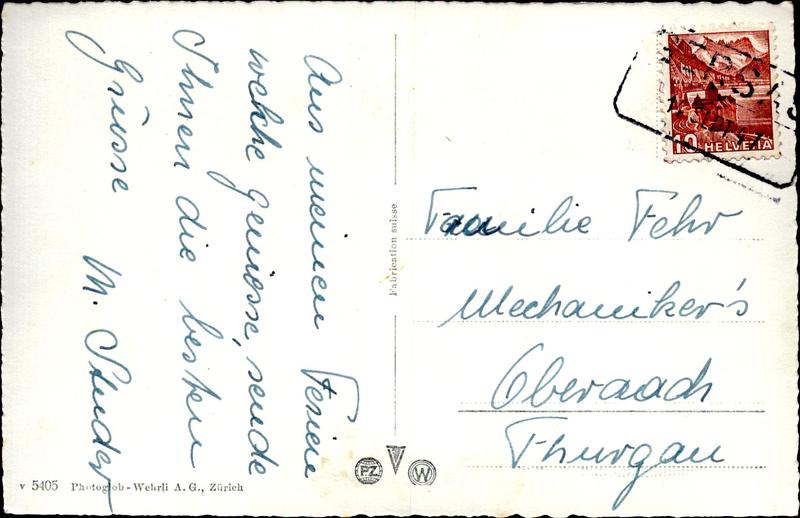 Aus meinen Ferien
welche geniesse, sende
Ihnen die besten
Grüsse
M. Studer
Fabrication suisse
10 HELVETIA
Familie Fehr
Mechaniker's
Oberaach
Thurgau
PZ W
v 5405 Photoglob-Wehrli A. G., Zürich